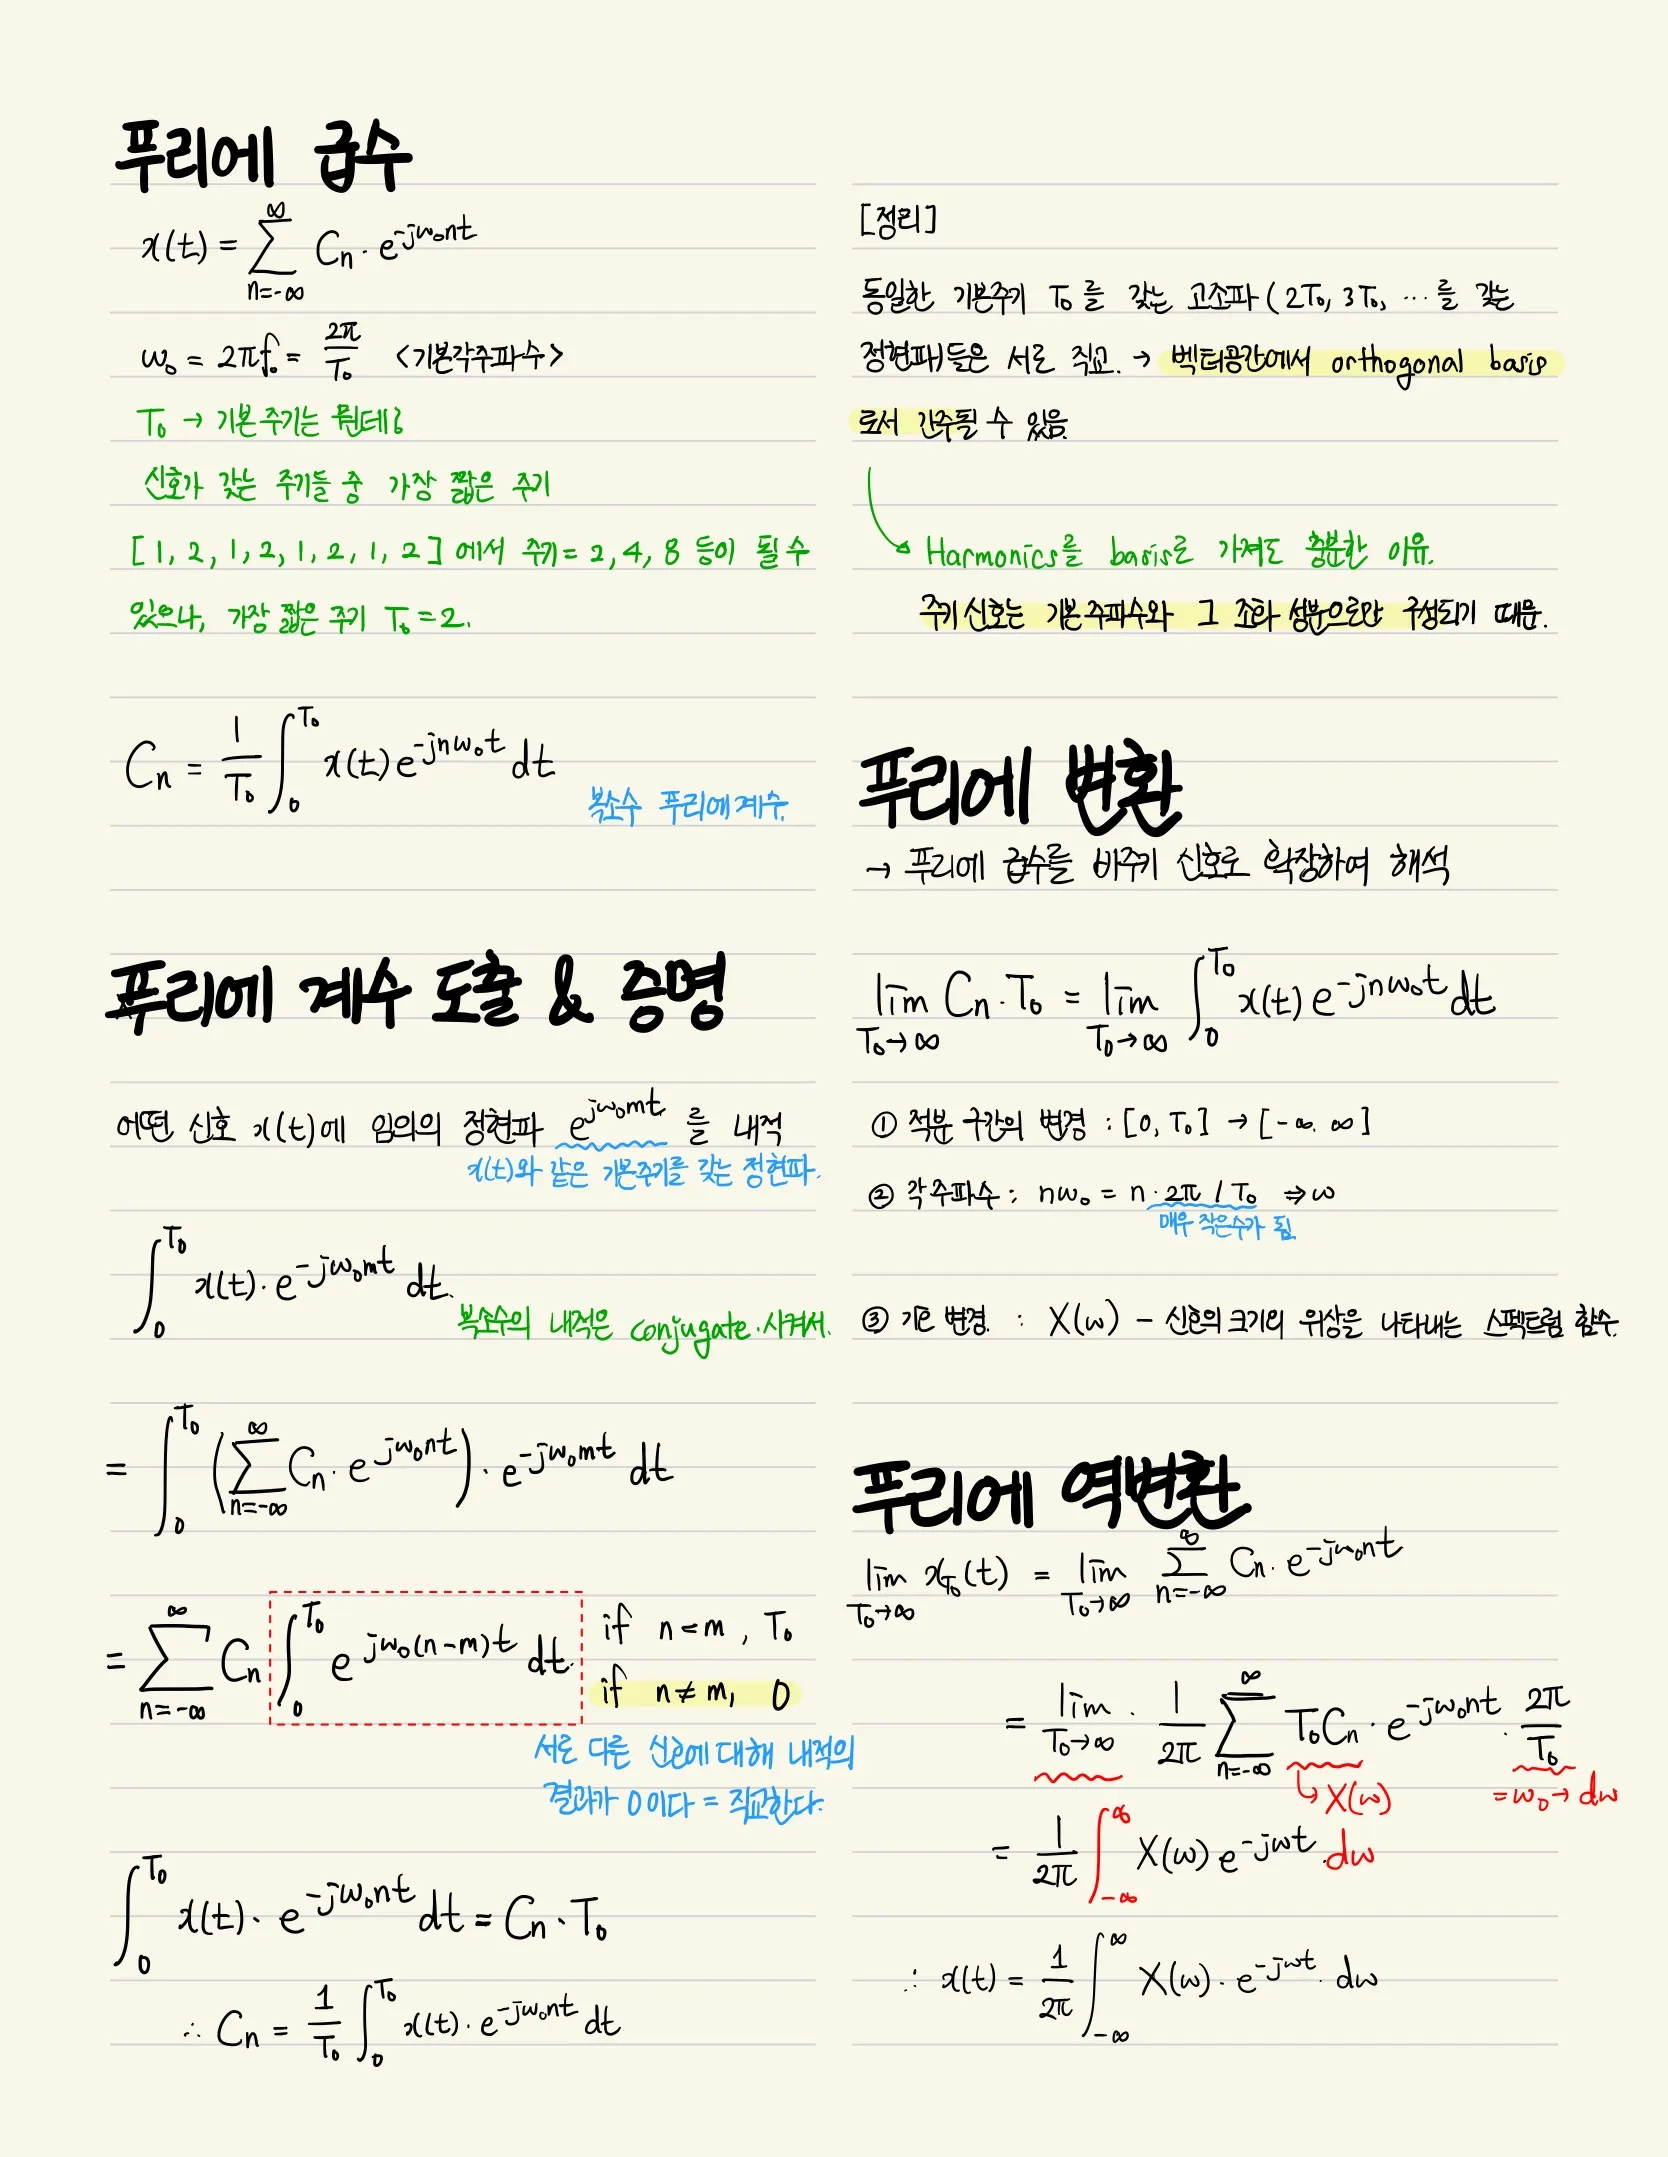 푸리에 급수
x(t) = ∑_{n=-∞}^{∞} Cn · e^{-jω₀nt}
ω₀ = 2πf₀ = 2π/T₀ <기본각주파수>
T₀ → 기본주기는 뭔데?
신호가 갖는 주기들 중 가장 짧은 주기
[1, 2, 1, 2, 1, 2, 1, 2] 에서 주기 = 2, 4, 8 등이 될 수
있으나, 가장 짧은 주기 T₀ = 2.
Cn = 1/T₀ ∫₀^{T₀} x(t) e^{-jnω₀t} dt
복소수 푸리에 계수.
푸리에 계수 도출 & 증명
어떤 신호 x(t)에 임의의 정현파 e^{jω₀mt} 를 내적
x(t)와 같은 기본주기를 갖는 정현파.
∫₀^{T₀} x(t) · e^{-jω₀mt} dt.
복소수의 내적은 conjugate.시켜서.
= ∫₀^{T₀} (∑_{n=-∞}^{∞} Cn · e^{jω₀nt}) · e^{-jω₀mt} dt
= ∑_{n=-∞}^{∞} Cn ∫₀^{T₀} e^{jω₀(n-m)t} dt.
if n=m, T₀
if n≠m, 0
서로 다른 신호에 대해 내적의
결과가 0이다 = 직교한다.
∫₀^{T₀} x(t) · e^{-jω₀nt} dt = Cn · T₀
∴ Cn = 1/T₀ ∫₀^{T₀} x(t) · e^{-jω₀nt} dt
[정리]
동일한 기본주기 T₀ 를 갖는 고조파 (2T₀, 3T₀, ⋯ 를 갖는
정현파)들은 서로 직교. → 벡터공간에서 orthogonal basis
로서 간주될 수 있음.
Harmonics를 basis로 가져도 충분한 이유.
주기 신호는 기본주파수와 그 조화 성분으로만 구성되기 때문.
푸리에 변환
→ 푸리에 급수를 비주기 신호로 확장하여 해석
lim_{T₀→∞} Cn · T₀ = lim_{T₀→∞} ∫₀^{T₀} x(t) e^{-jnω₀t} dt
① 적분 구간의 변경 : [0, T₀] → [-∞. ∞]
② 각주파수 : nω₀ = n · 2π / T₀ ⇒ ω
매우 작은수가 됨.
③ 기호 변경. : X(ω) - 신호의 크기와 위상을 나타내는 스펙트럼 함수.
푸리에 역변환
lim_{T₀→∞} x_{T₀}(t) = lim_{T₀→∞} ∑_{n=-∞}^{∞} Cn · e^{-jω₀nt}
= lim_{T₀→∞} · 1/2π ∑_{n=-∞}^{∞} T₀Cn · e^{-jω₀nt} · 2π/T₀
↳ X(ω) = ω₀ → dω
= 1/2π ∫_{-∞}^{∞} X(ω) e^{-jωt} · dω
∴ x(t) = 1/2π ∫_{-∞}^{∞} X(ω) · e^{-jωt} · dω